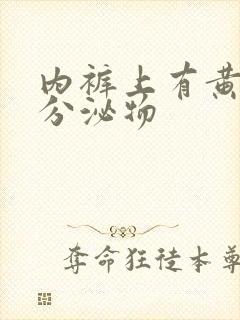 内裤上有黄
分泌物
夺命狂徒本尊